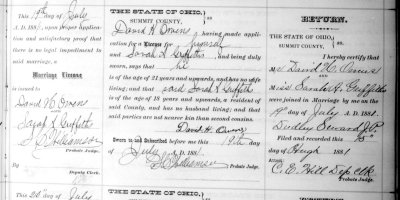 THE STATE OF OHIO,
SUMMIT COUNTY,
ss.
On 19th day of July
A. D. 1881, upon proper application
and satisfactory proof that there
is no legal impediment to said
marriage, a
Marriage License
was issued to
David H. Owens
Sarah L. Griffith
Probate Judge.
By
Deputy Clerk.
On 20th day of July
THE STATE OF OHIO,
SUMMIT COUNTY,
ss.
David H. Owens having made application
for a License for himself
and Sarah L. Griffith and being duly
sworn, says that he
is of the age of 21 years and upwards, and has no wife
living; and that said Sarah L. Griffith
is of the age of 18 years and upwards, a resident of
said County, and has no husband living; and that
said parties are not nearer kin than second cousins.
David H. Owens
Sworn to and Subscribed before me this 19th day
of July A. D. 1881.
Probate Judge.
THE STATE OF OHIO,
RETURN.
THE STATE OF OHIO,
SUMMIT COUNTY,
ss.
I hereby certify that
Mr David H. Owens
Miss Sarah L. Griffith
were joined in Marriage by me on the
19th day of July A. D. 1881.
Dudley Seward J.P.
Filed and recorded this
day of 1881.
C. E. Hill Dep clk
Probate Judge.
THE STATE OF OHIO,